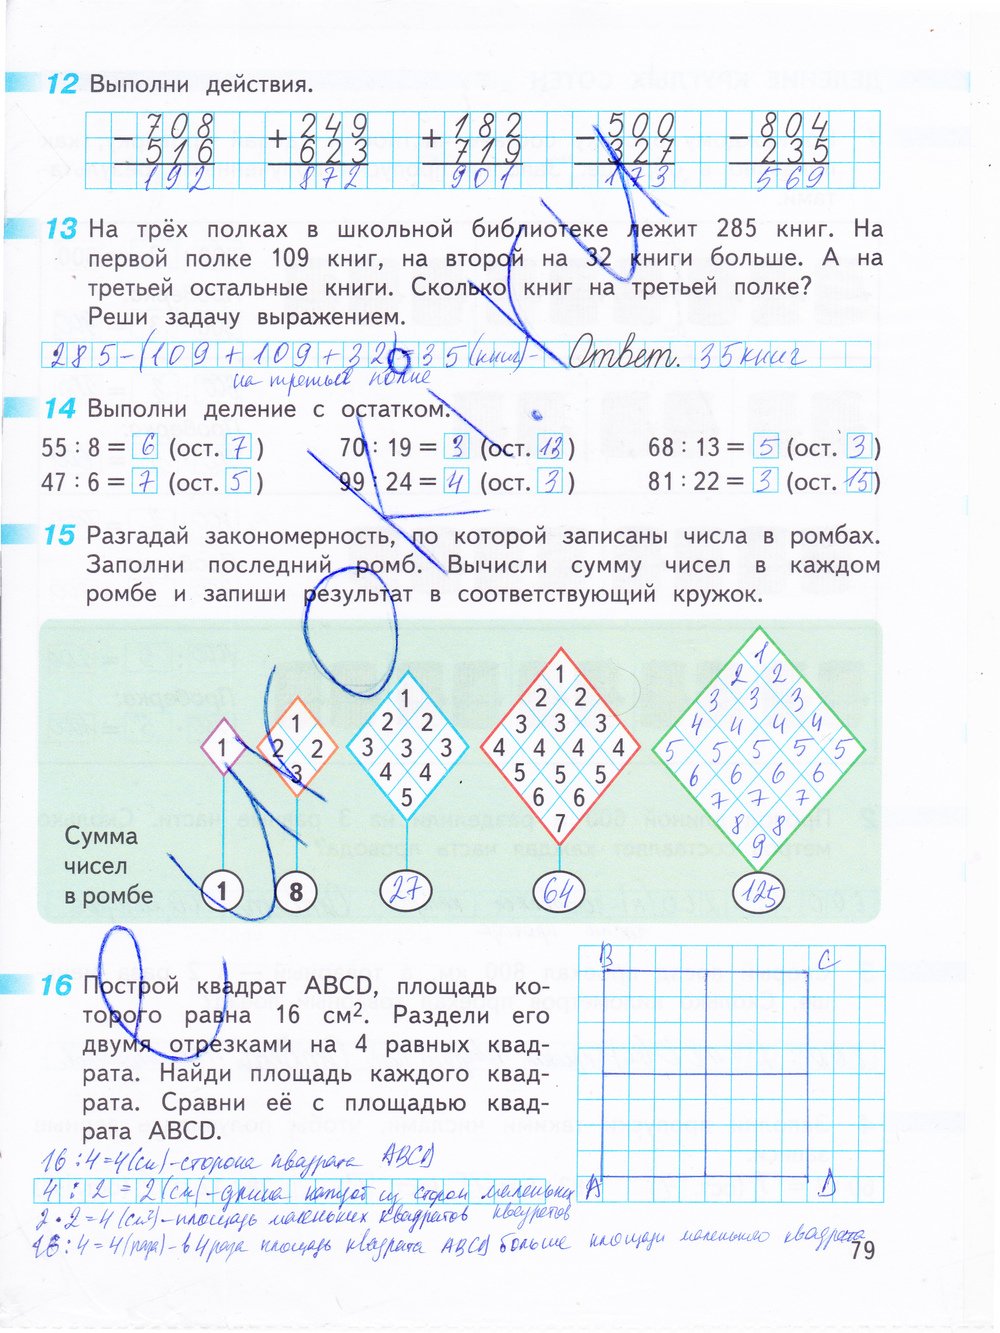 12 Выполни действия.
− 708 + 249 + 182 − 500 − 804
516 623 719 327 235
192 872 901 173 569
13 На трёх полках в школьной библиотеке лежит 285 книг. На
первой полке 109 книг, на второй на 32 книги больше. А на
третьей остальные книги. Сколько книг на третьей полке?
Реши задачу выражением.
285-(109+109+32)=35(книг)- Ответ. 35 книг
на третьей полке
14 Выполни деление с остатком.
55 : 8 = 6 (ост. 7) 70 : 19 = 3 (ост. 13) 68 : 13 = 5 (ост. 3)
47 : 6 = 7 (ост. 5) 99 : 24 = 4 (ост. 3) 81 : 22 = 3 (ост. 15)
15 Разгадай закономерность, по которой записаны числа в ромбах.
Заполни последний ромб. Вычисли сумму чисел в каждом
ромбе и запиши результат в соответствующий кружок.
1
1 2 2
1 1 2 2 3 3 3
1 2 2 2 2 3 3 3 4 4 4 4
1 2 2 3 3 3 4 4 4 4 5 5 5 5 5
3 4 4 5 5 5 6 6 6 6
5 6 6 7 7 7
7 8 8
9
Сумма
чисел
в ромбе
1 8 27 64 125
16 Построй квадрат ABCD, площадь ко-
торого равна 16 см². Раздели его
двумя отрезками на 4 равных квад-
рата. Найди площадь каждого квад-
рата. Сравни её с площадью квад-
рата ABCD.
B C
A D
16:4=4(см)-сторона квадрата ABCD
4:2=2(см)-длина каждой из сторон маленьких
2·2=4(см²)-площадь маленьких квадратов квадратов
16:4=4(раза)-в 4 раза площадь квадрата ABCD больше площади маленького квадрата
79
РЕШУУРОКИ.RU